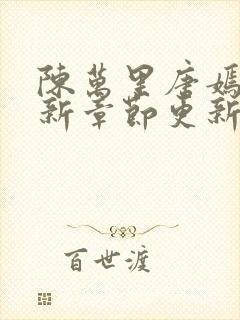 陳萬里唐嫣
新章節更新
百世渡